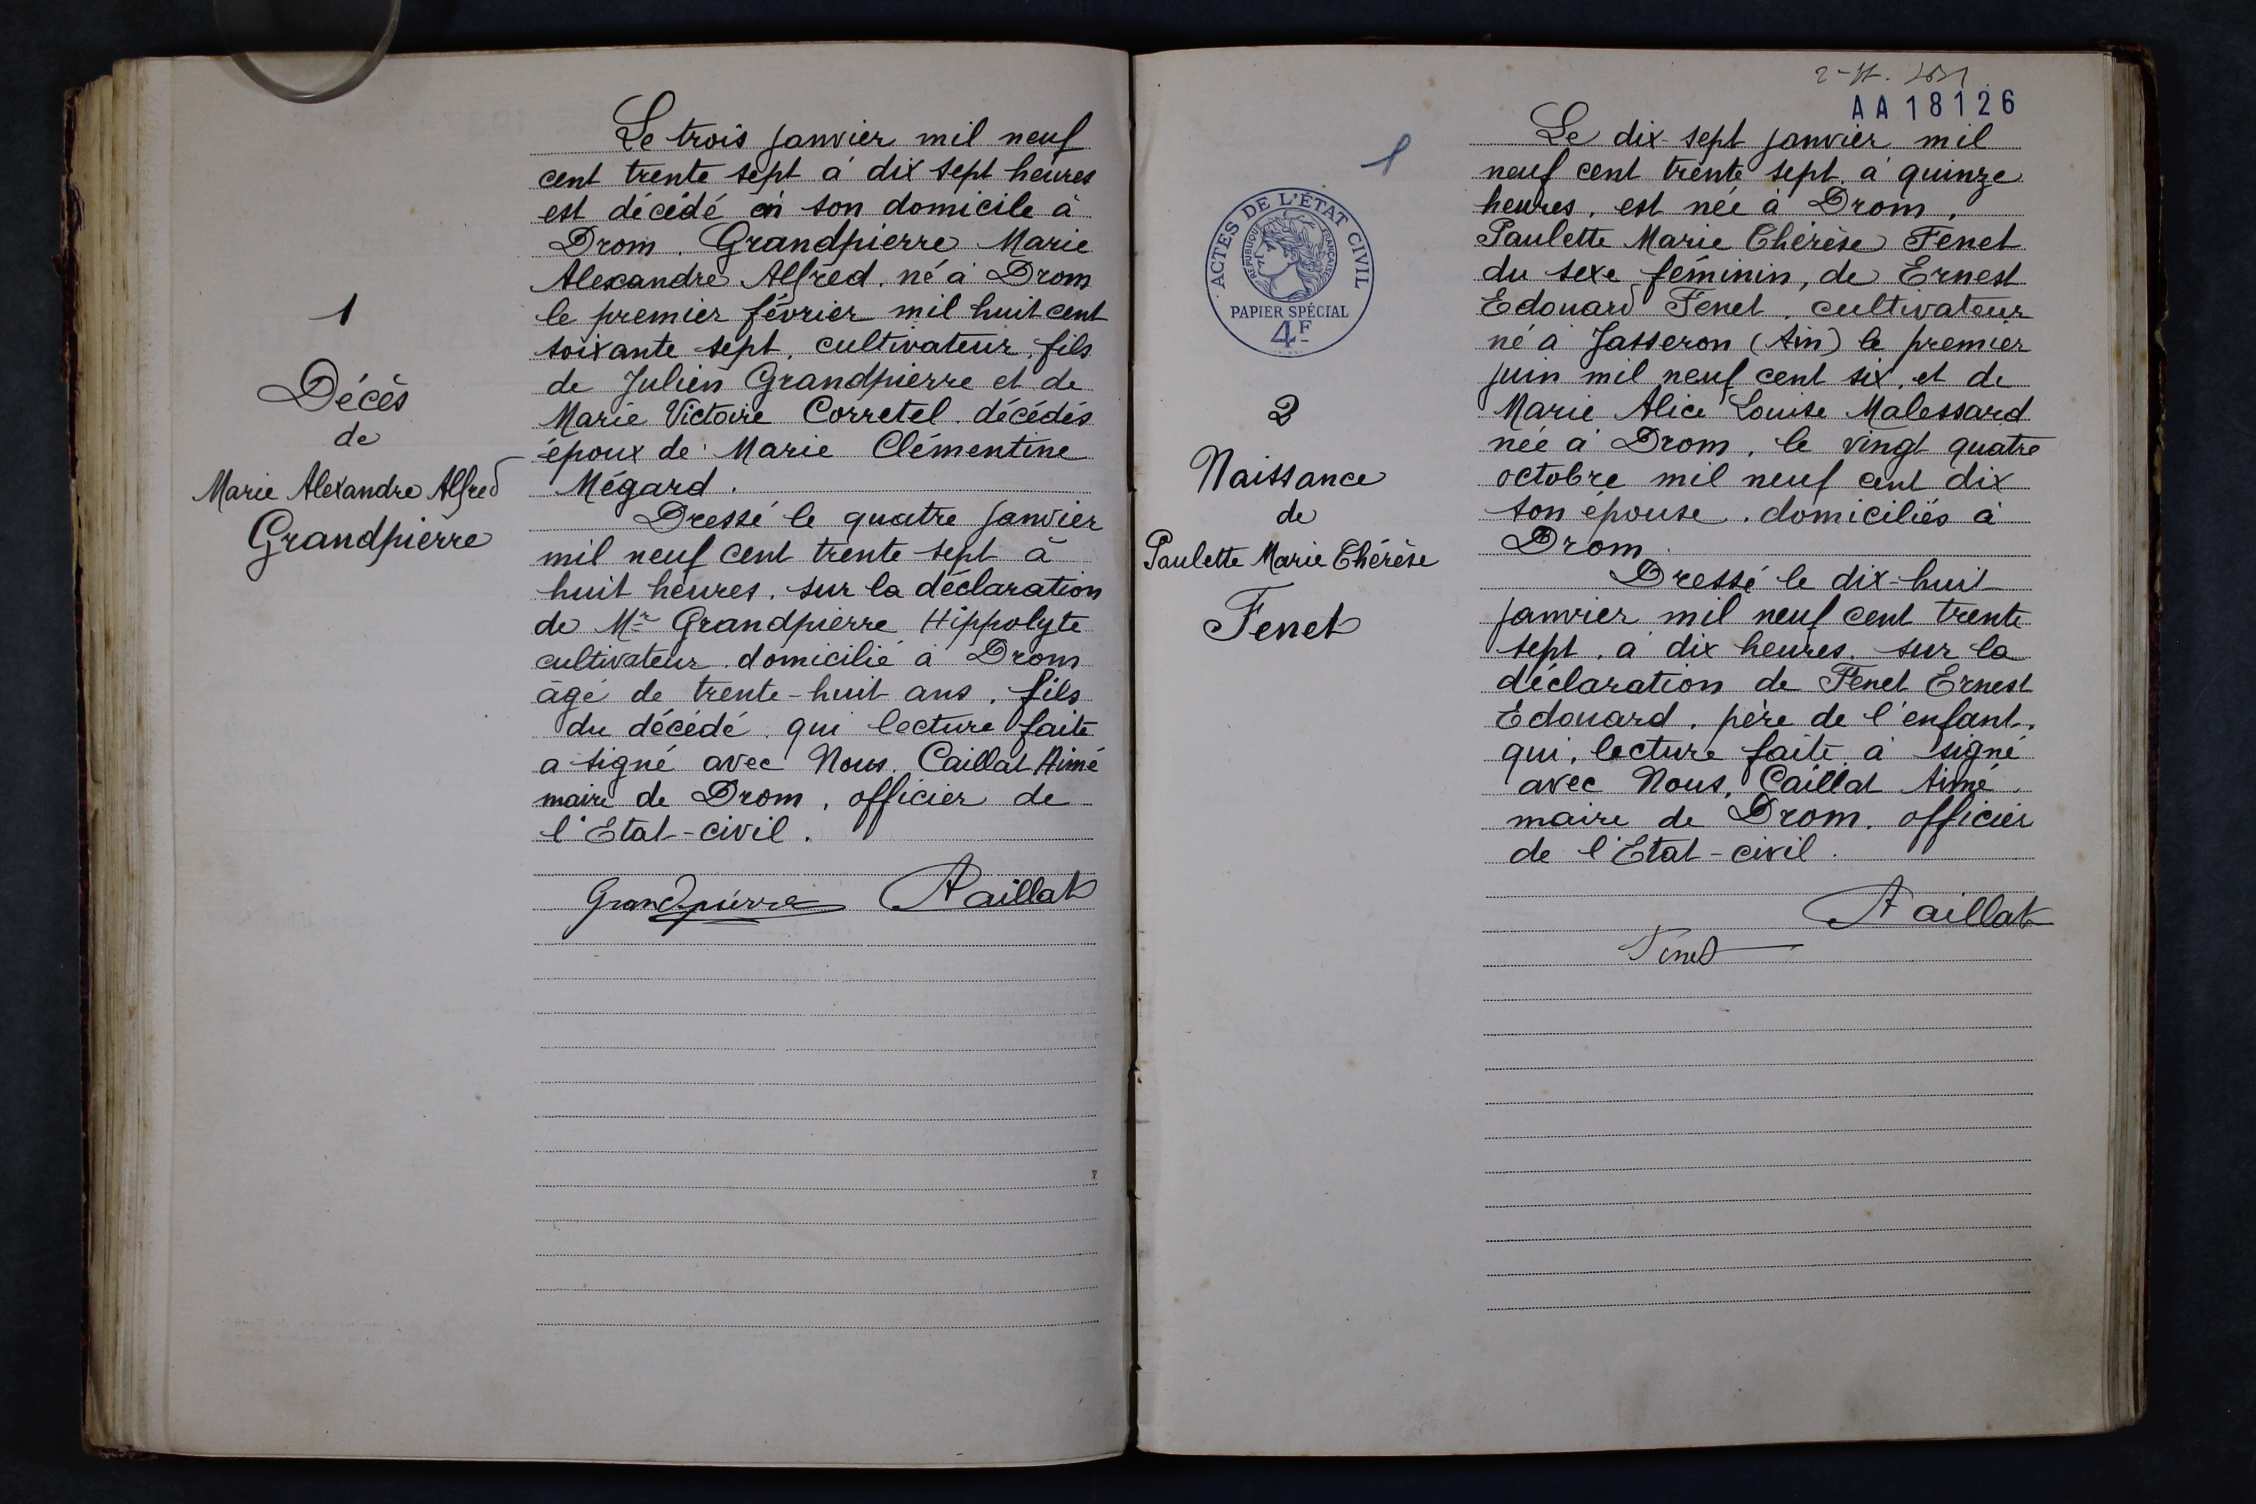 1
Décès
de
Marie Alexandre Alfred
Grandpierre
Le trois janvier mil neuf
cent trente sept à dix sept heures
est décédé en son domicile à
Drom. Grandpierre Marie
Alexandre Alfred. né à Drom
le premier février mil huit cent
soixante sept, cultivateur, fils
de Julien Grandpierre et de
Marie Victoire Corretel. décédés
époux de Marie Clémentine
Mégard.
Dressé le quatre janvier
mil neuf cent trente sept à
huit heures. sur la déclaration
de Mr Grandpierre Hippolyte
cultivateur. domicilié à Drom
âgé de trente-huit ans, fils
du décédé. qui lecture faite
a signé avec Nous. Caillat Aimé
maire de Drom, officier de
l'Etat-civil.
Grandpierre ACaillat
AA18126
1
ACTES DE L'ÉTAT CIVIL
RÉPUBLIQUE FRANÇAISE
PAPIER SPÉCIAL
4F
2
Naissance
de
Paulette Marie Thérèse
Fenet
Le dix-sept janvier mil
neuf cent trente sept. à quinze
heures. est née à Drom.
Paulette Marie Thérèse Fenet
du sexe féminin, de Ernest
Edouard Fenet. cultivateur
né à Jasseron (Ain) le premier
juin mil neuf cent six, et de
Marie Alice Louise Malessard
née à Drom, le vingt quatre
octobre mil neuf cent dix
son épouse. domiciliés à
Drom.
Dressé le dix-huit
janvier mil neuf cent trente
sept. à dix heures. sur la
déclaration de Fenet Ernest
Edouard. père de l'enfant.
qui, lecture faite à signé
avec Nous, Caillat Aimé.
maire de Drom. officier
de l'Etat-civil.
ACaillat
Fenet